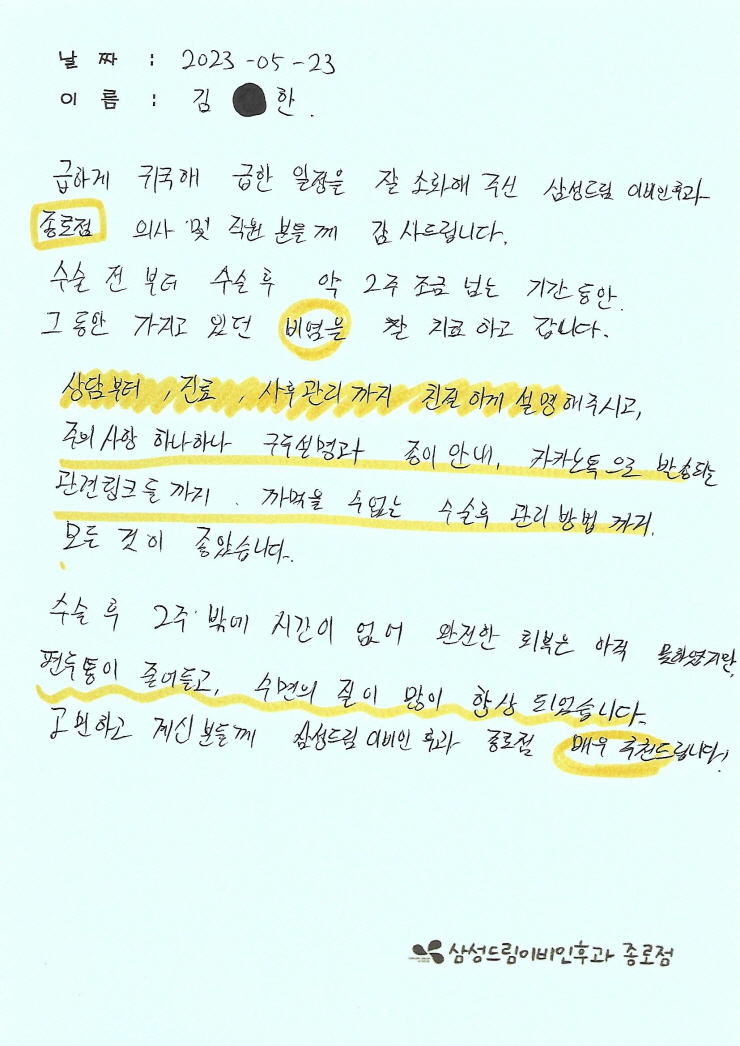 날 짜 : 2023-05-23
이 름 : 김 한.
급하게 귀국해 급한 일정을 잘 소화해 주신 삼성드림 이비인후과
종로점 의사 및 직원 분들께 감사드립니다.
수술 전 부터 수술 후 약 2주 조금 넘는 기간 동안.
그 동안 가지고 있던 비염을 잘 치료하고 갑니다.
상담부터, 진료, 사후관리까지 친절하게 설명해주시고,
주의사항 하나하나 구두설명과 종이 안내, 카카오톡으로 발송되는
관련링크들까지. 까먹을 수 없는 수술후 관리 방법 까지.
모든 것이 좋았습니다.
수술 후 2주 밖에 시간이 없어 완전한 회복은 아직 못하였지만,
편두통이 줄어들고, 수면의 질이 많이 향상 되었습니다.
고민하고 계신분들께 삼성드림 이비인후과 종로점 매우 추천드립니다!
삼성드림이비인후과 종로점